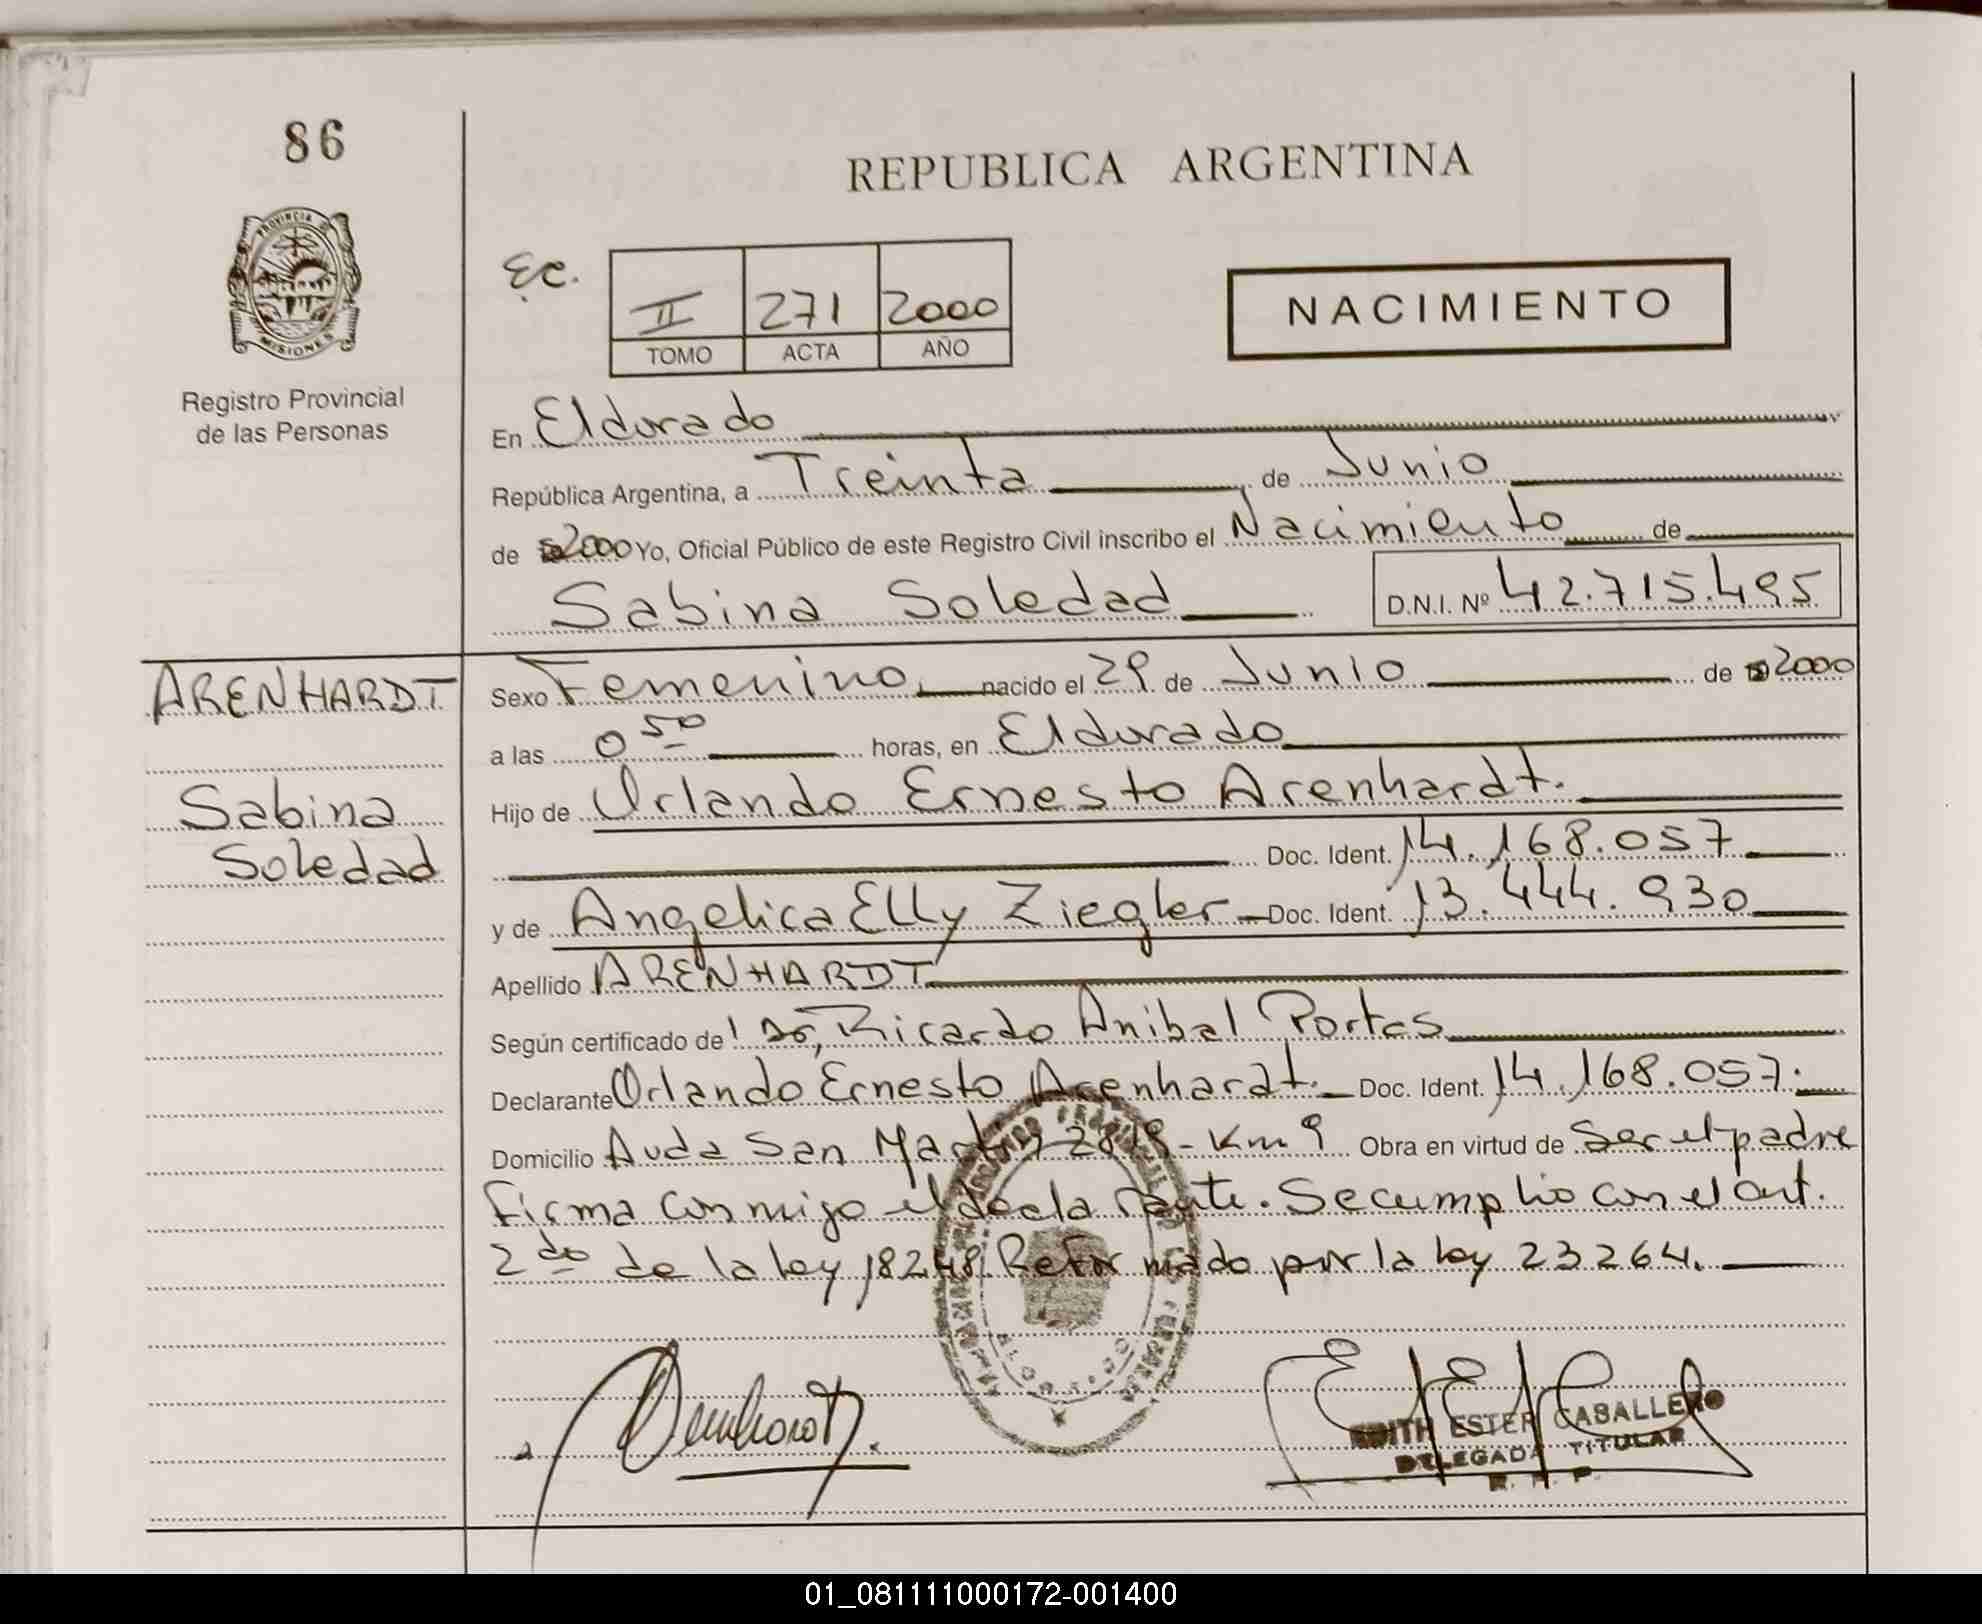 86
REPUBLICA ARGENTINA
PROVINCIA DE
MISIONES
Registro Provincial
de las Personas
Ec.
II 271 2000
TOMO ACTA AÑO
NACIMIENTO
En Eldorado
República Argentina, a Treinta de Junio
de 2000 Yo, Oficial Público de este Registro Civil inscribo el Nacimiento de
Sabina Soledad D.N.I. Nº 42.715.495
ARENHARDT
Sabina
Soledad
Sexo Femenino nacido el 29 de Junio de 2000
a las 0 50 horas, en Eldorado
Hijo de Orlando Ernesto Arenhardt.
Doc. Ident. 14.168.057
y de Angelica Elly Ziegler Doc. Ident. 13.444.930
Apellido ARENHARDT
Según certificado de Ricardo Anibal Portas
Declarante Orlando Ernesto Arenhardt. Doc. Ident. 14.168.057.
Domicilio Avda San Martin - Km 9 Obra en virtud de Ser el padre
firma conmigo el declarante. Se cumplio con el art.
2do de la ley 18248. Reformado por la ley 23264.
Arenhardt.
EDITH ESTER CABALLERO
DELEGADA TITULAR
R. P. P.
01_081111000172-001400